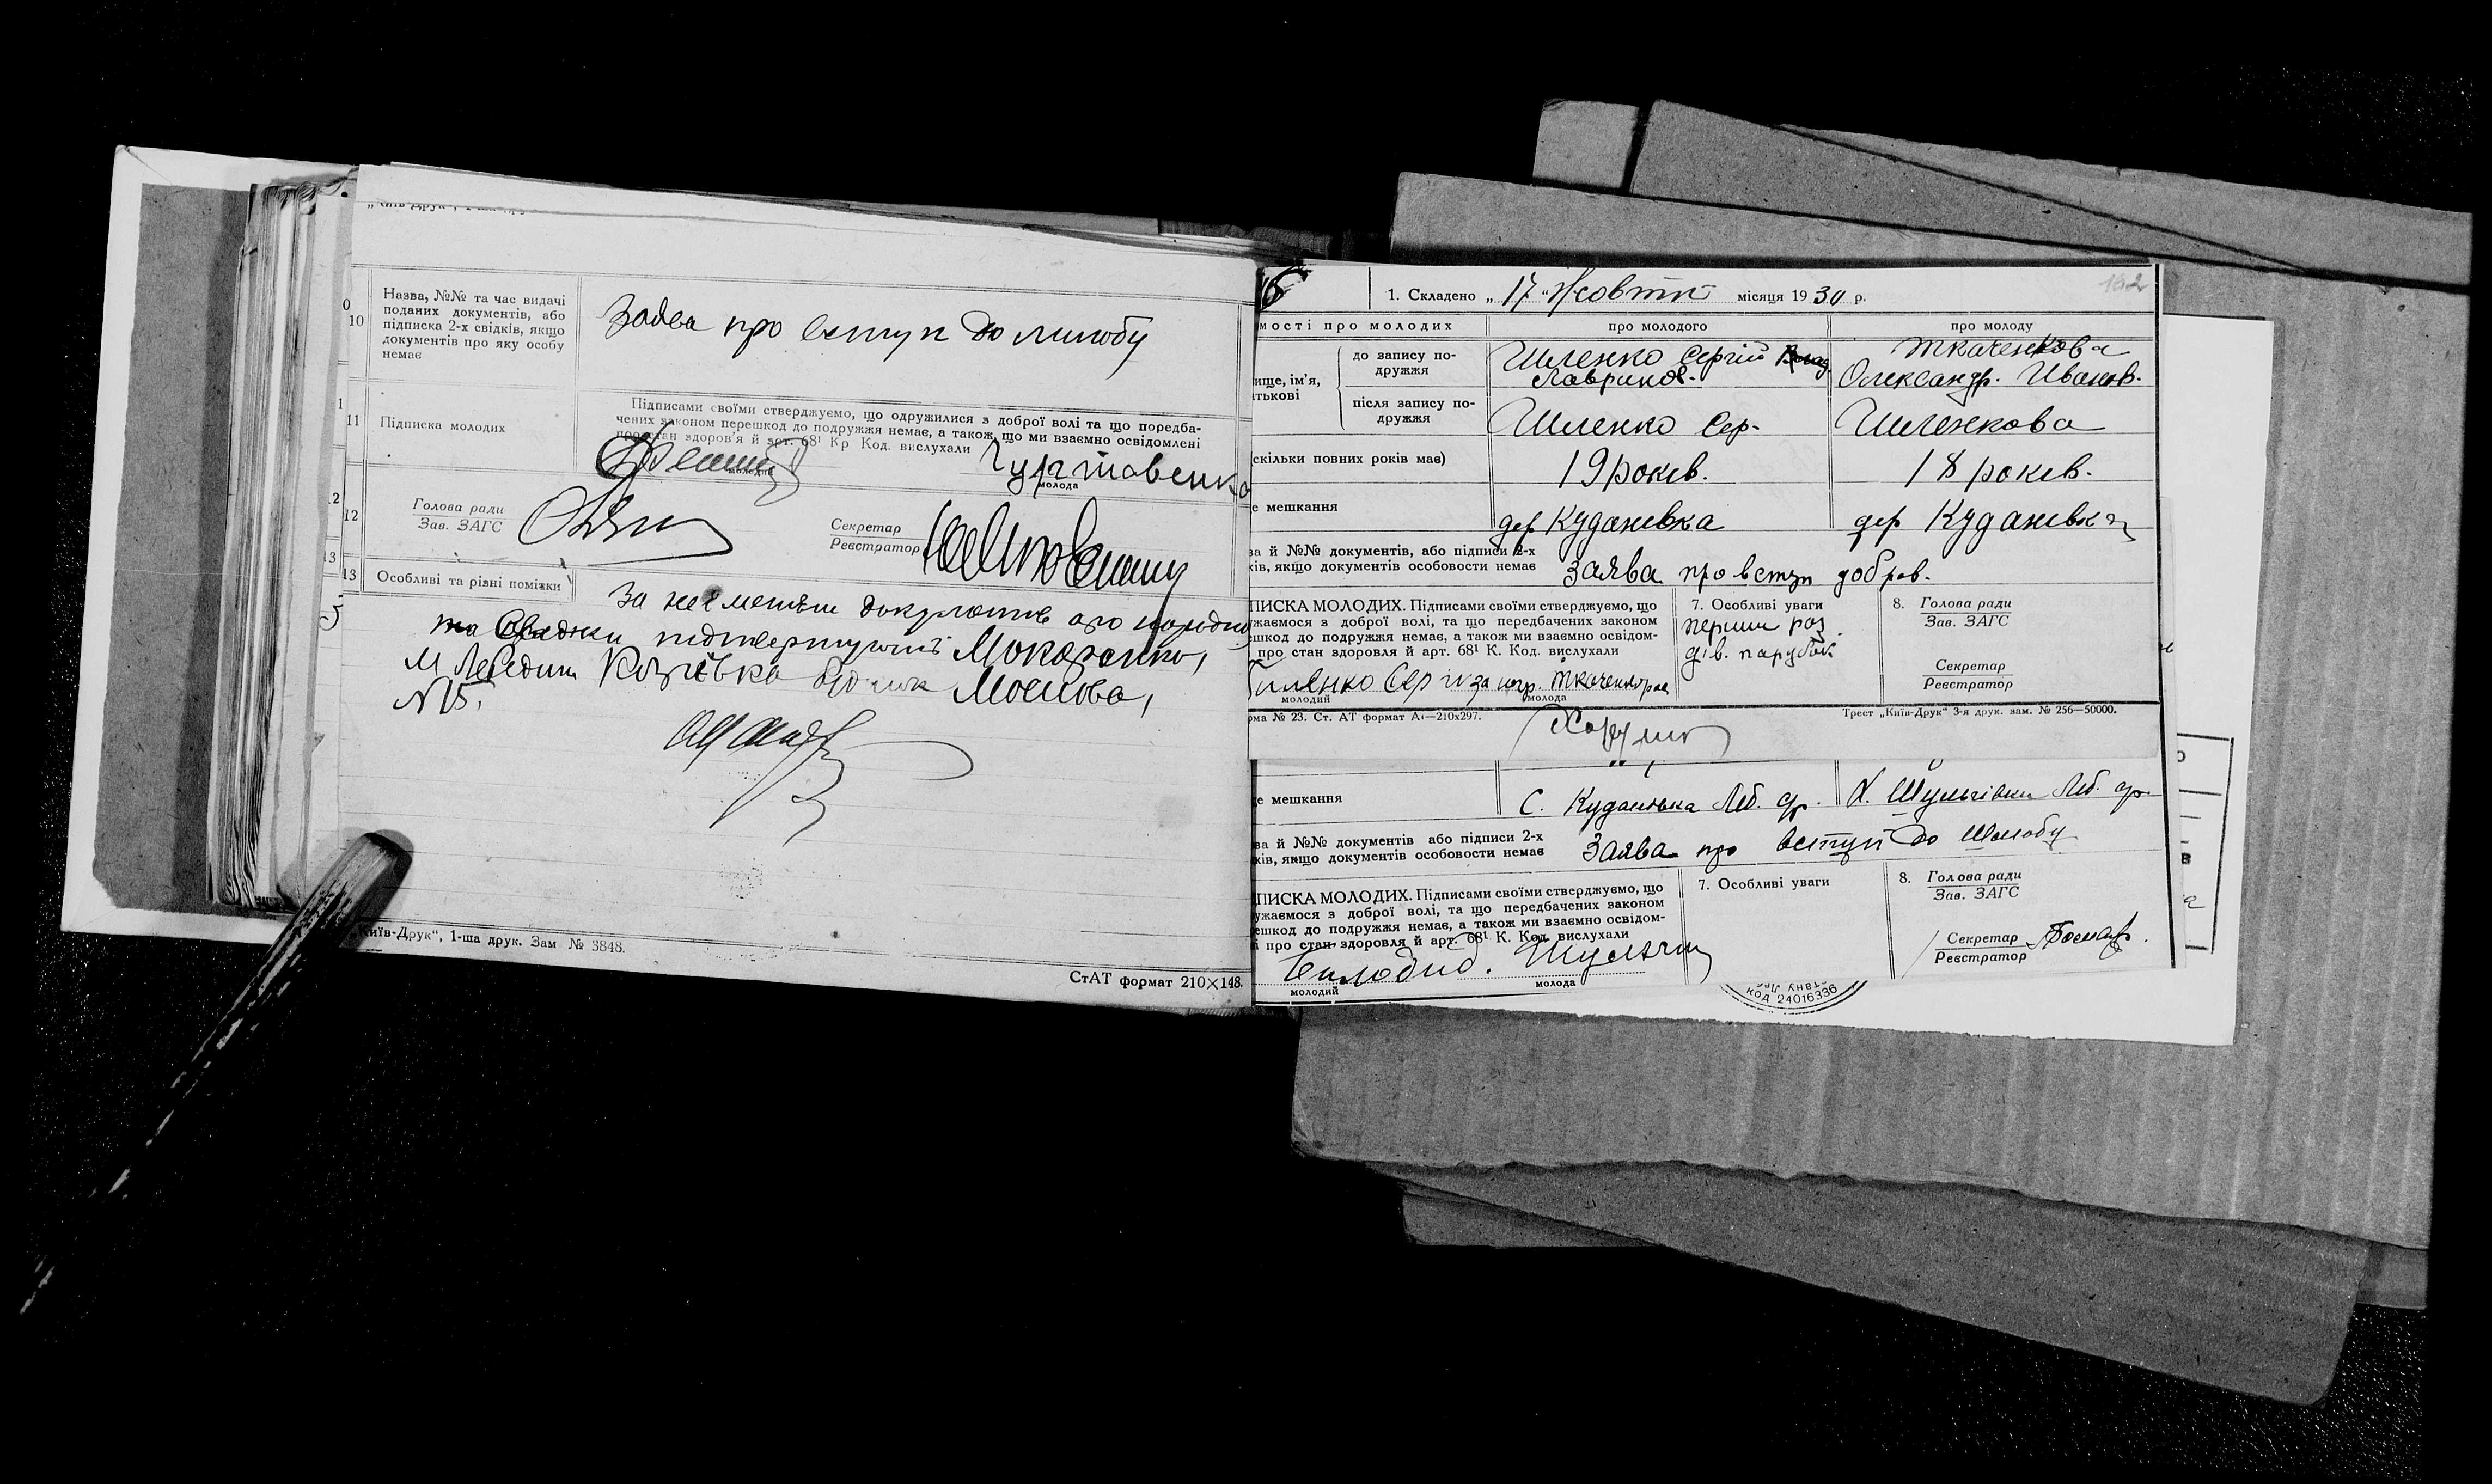 10
Назва, №№ та час видачі
поданих документів, або
підписка 2-х свідків, якщо
документів про яку особу
немає
Заява про вступ до шлюбу
11
Підписка молодих
Підписами своїми стверджуємо, що одружилися з доброї волі та що поредба-
чених законом перешкод до подружжя немає, а також що ми взаємно освідомлені
про стан здоров'я й арт. 68¹ Кр Код. вислухали
молода
12
Голова ради
Зав. ЗАГС
Секретар
Реєстратор
13
Особливі та різні помітки
За
документів про
та
Макаренко,
м Лебедин
№ 15,
„Київ-Друк“, 1-ша друк. Зам № 3848.
СтАТ формат 210×148.
1. Складено „ 17 “ Жовтн місяця 1930 р.
102
мості про молодих
про молодого
про молоду
ище, ім'я,
тькові
до запису по-
дружжя
Шленко Сергій
Лавринов.
Ткаченкова
Олександр. Иванов.
після запису по-
дружжя
Шленко Сер.
Шленкова
скільки повних років має)
19 років.
18 років.
е мешкання
дер Куданівка
дер Куданівка
ва й №№ документів, або підписи 2-х
ків, якщо документів особовости немає
Заява про вступ добров.
ПИСКА МОЛОДИХ. Підписами своїми стверджуємо, що
ужаємося з доброї волі, та що передбачених законом
ешкод до подружжя немає, а також ми взаємно освідом-
про стан здоровля й арт. 68¹ К. Код. вислухали
7. Особливі уваги
перши раз
дів. парубок
8. Голова ради
Зав. ЗАГС
Секретар
Реєстратор
молодий
молода
рма № 23. Ст. АТ формат А₄—210х297.
Трест „Київ-Друк“ 3-я друк. зам. № 256—50000.
е мешкання
С. Куданівка Леб. ср.
Х. Шульгівка Леб. ср.
ва й №№ документів або підписи 2-х
ків, якщо документів особовости немає
Заява про вступ до Шлюбу
ПИСКА МОЛОДИХ. Підписами своїми стверджуємо, що
ужаємося з доброї волі, та що передбачених законом
ешкод до подружжя немає, а також ми взаємно освідом-
про стан здоровля й арт. 68¹ К. Код. вислухали
7. Особливі уваги
8. Голова ради
Зав. ЗАГС
Секретар
Реєстратор
молодий
молода
код 24016336